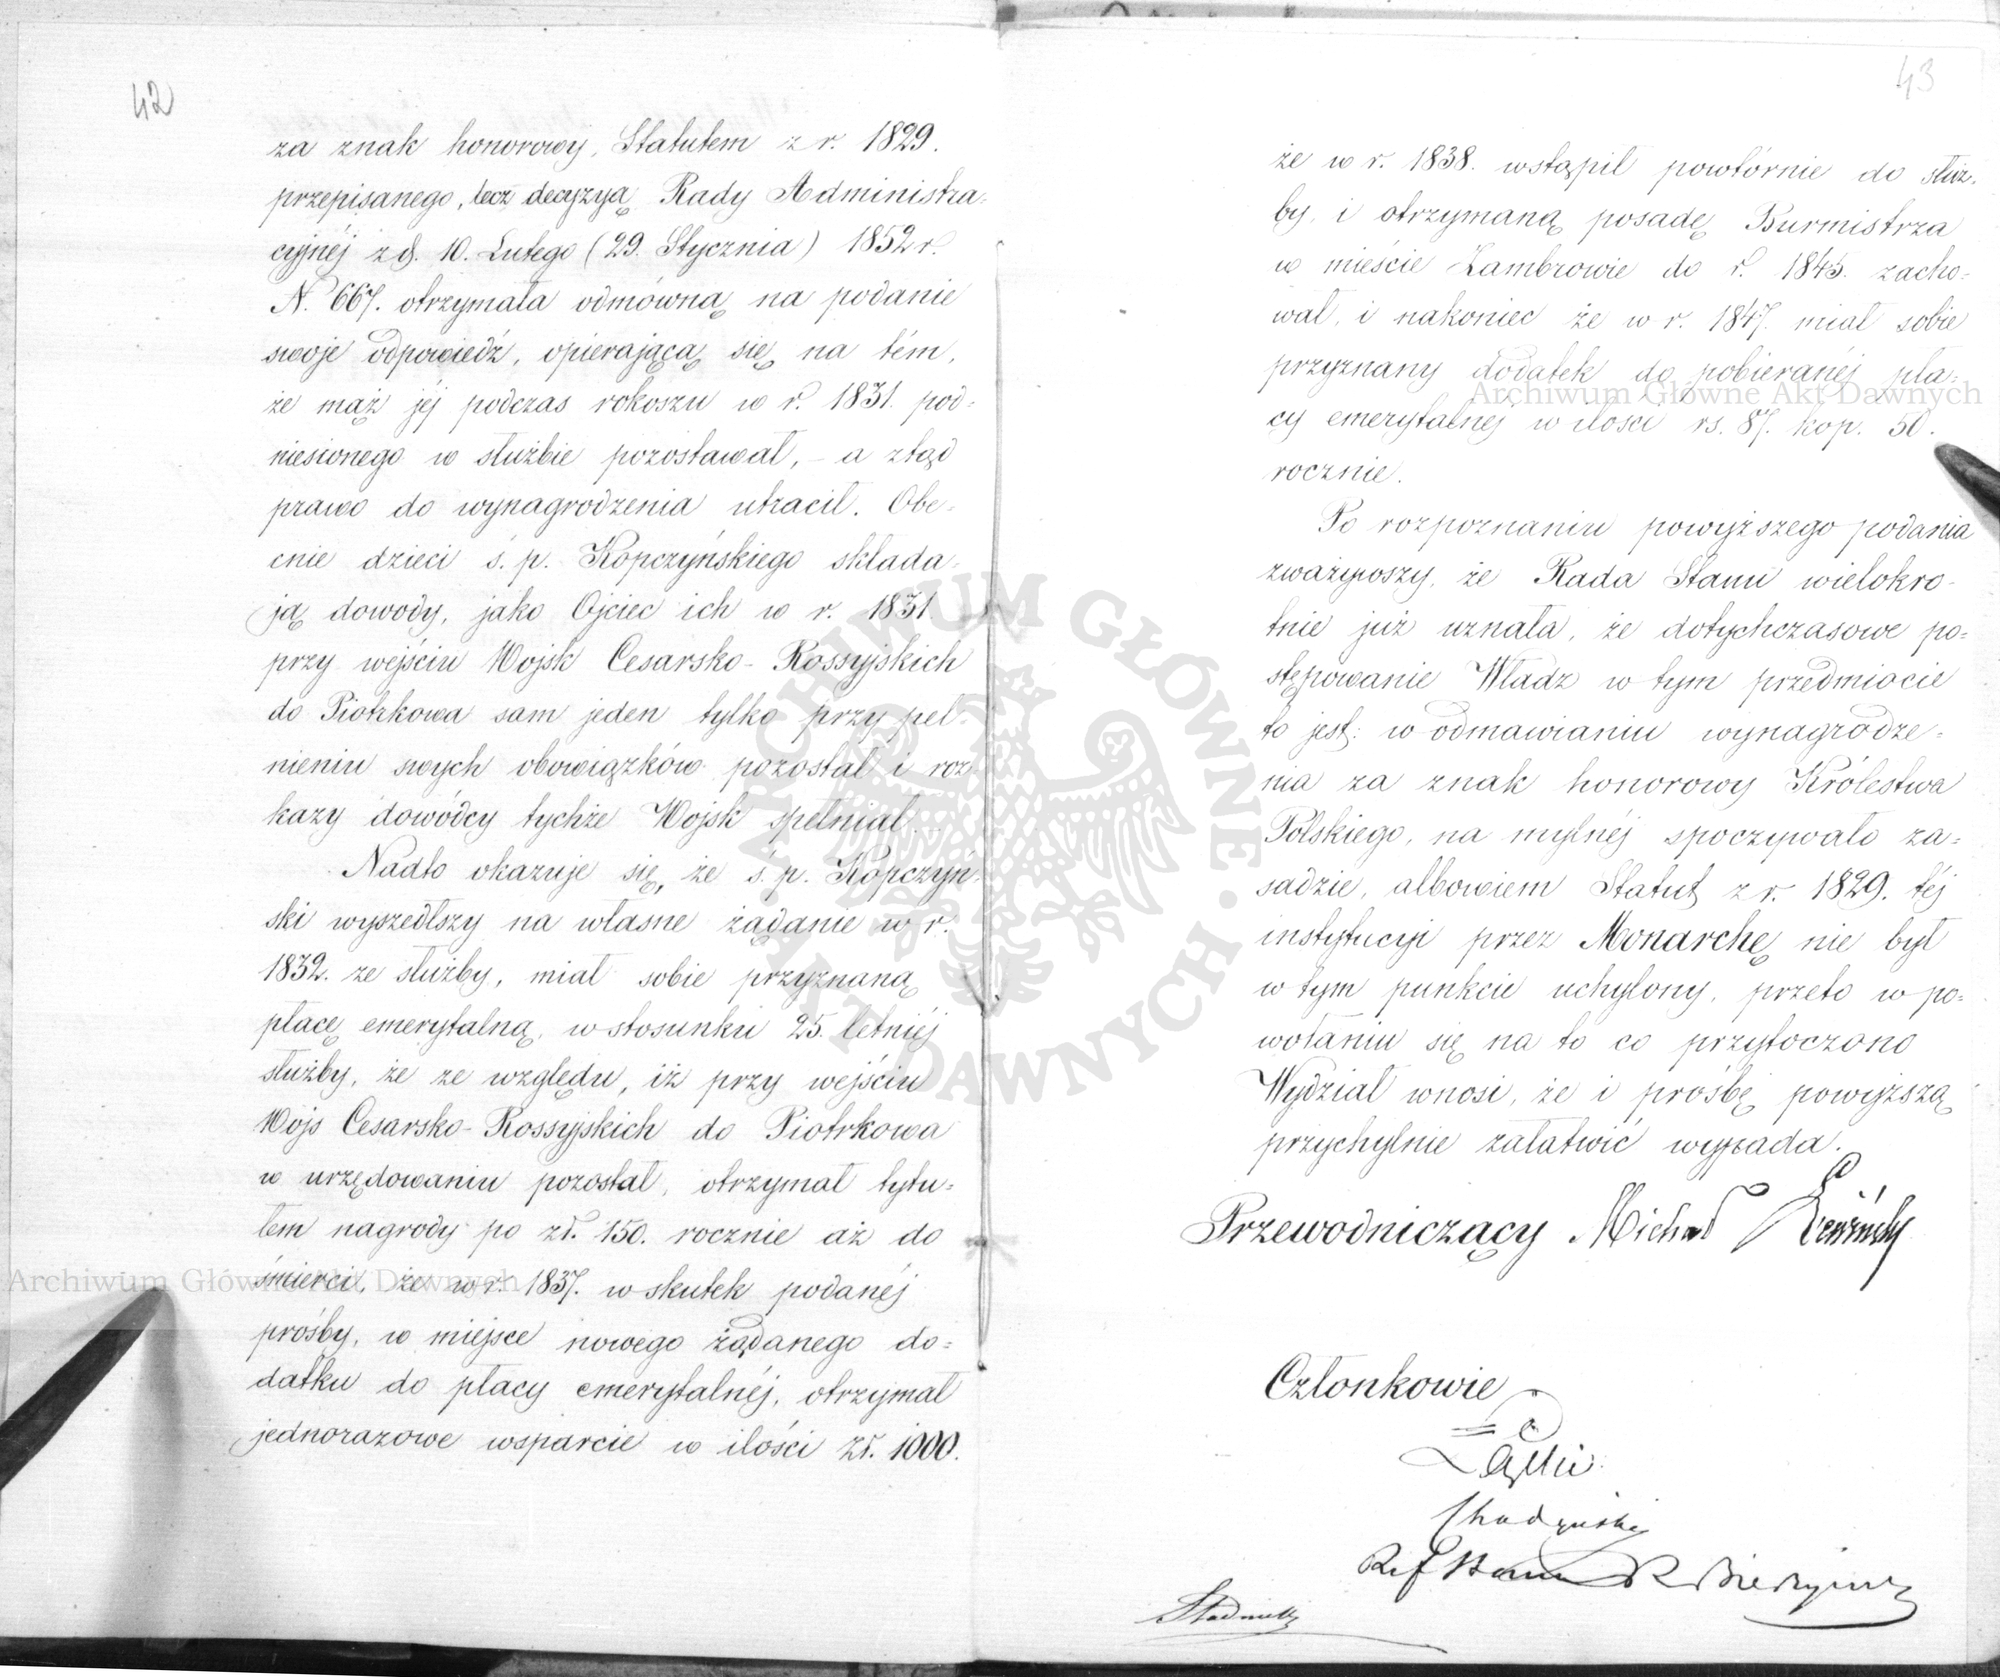 42
za znak honorowy, Statutem z r. 1829.
przepisanego, lecz decyzyą Rady Administra-
cyjnéj z d. 10. Lutego (29. Stycznia) 1852 r.
N. 667. otrzymała odmówną na podanie
swoje odpowiedź, opierającą się na tém,
że mąż jéj podczas rokoszu w r. 1831. pod-
niesionego w służbie pozostawał, – a ztąd
prawo do wynagrodzenia utracił. Obe-
cnie dzieci ś. p. Kopczyńskiego składa-
ją dowody, jako Ojciec ich w r. 1831.
przy wejściu Wojsk Cesarsko-Rossyjskich
do Piotrkowa sam jeden tylko przy peł-
nieniu swych obowiązków pozostał i roz-
kazy dowódcy tychże Wojsk spełniał. –
Nadto okazuje się, że ś. p. Kopczyń-
ski wyszedłszy na własne żądanie w r.
1832. ze służby, miał sobie przyznaną
płacę emerytalną, w stosunku 25. letniéj
służby, że ze względu, iż przy wejściu
Wojs Cesarsko-Rossyjskich do Piotrkowa
w urzędowaniu pozostał, otrzymał tytu-
łem nagrody po zł. 150. rocznie aż do
śmierci, że w r. 1837. w skutek podanéj
prośby, w miejsce nowego żądanego do-
datku do płacy emerytalnéj, otrzymał
jednorazowe wsparcie w ilości zł. 1000.
43
że w r. 1838. wstąpił powtórnie do służ-
by, i otrzymaną posadę Burmistrza
w mieście Zambrowie do r. 1845. zacho-
wał, i nakoniec że w r. 1847. miał sobie
przyznany dodatek do pobieranéj pła-
cy emerytalnéj w ilości rs. 87. kop. 50.
rocznie.
Po rozpoznaniu powyższego podania
zważywszy, że Rada Stanu wielokro-
tnie już uznała, że dotychczasowe po-
stępowanie Władz w tym przedmiocie
to jest: w odmawianiu wynagrodze-
nia za znak honorowy Królestwa
Polskiego, na mylnéj spoczywało za-
sadzie, albowiem Statut z r. 1829. téj
instytucyi przez Monarchę nie był
w tym punkcie uchylony, przeto w po-
wołaniu się na to co przytoczono
Wydział wnosi, że i prośbę powyższą
przychylnie załatwić wypada.
Przewodniczący Michał
Członkowie
Stadnicki
Archiwum Główne Akt Dawnych
Archiwum Główne Akt Dawnych
ARCHIWUM GŁÓWNE · AKT DAWNYCH ·